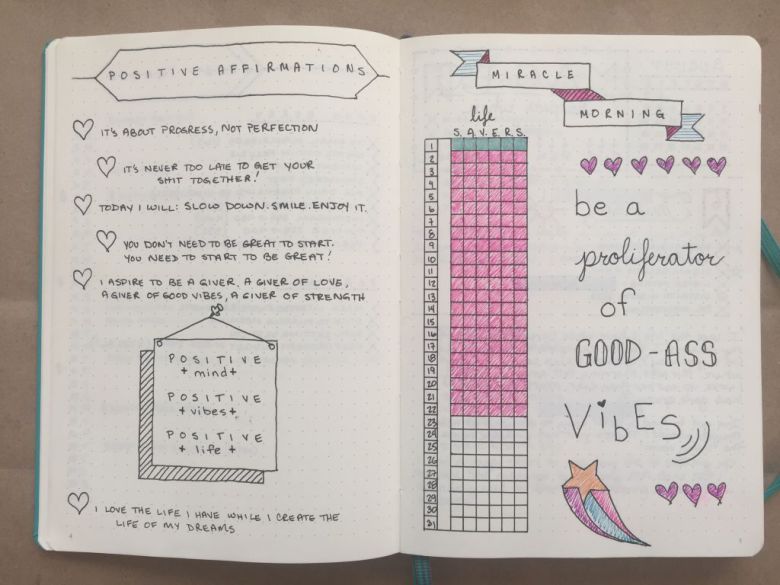 POSITIVE AFFIRMATIONS
IT'S ABOUT PROGRESS, NOT PERFECTION
IT'S NEVER TOO LATE TO GET YOUR
SHIT TOGETHER!
TODAY I WILL: SLOW DOWN. SMILE. ENJOY IT.
YOU DON'T NEED TO BE GREAT TO START.
YOU NEED TO START TO BE GREAT!
I ASPIRE TO BE A GIVER. A GIVER OF LOVE,
A GIVER OF GOOD VIBES, A GIVER OF STRENGTH
POSITIVE
+ mind +
POSITIVE
+ vibes +
POSITIVE
+ life +
I LOVE THE LIFE I HAVE WHILE I CREATE THE
LIFE OF MY DREAMS
4
MIRACLE
MORNING
life
S.A.V.E.R.S.
1
2
3
4
5
6
7
8
9
10
11
12
13
14
15
16
17
18
19
20
21
22
23
24
25
26
27
28
29
30
31
be a
proliferator
of
GOOD-ASS
VibES